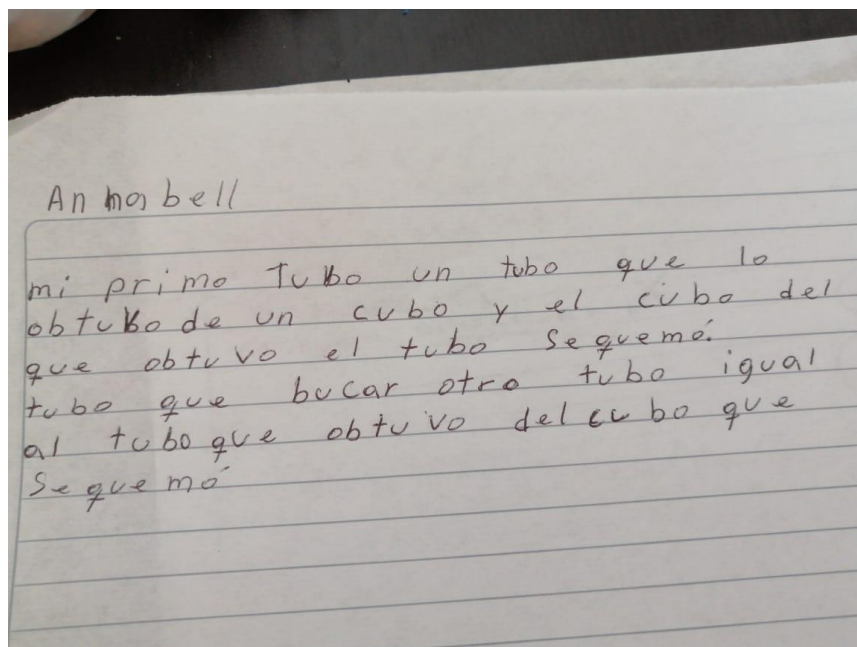 Annabell
mi primo Tubo un tubo que lo
obtubo de un cubo y el cubo del
que obtuvo el tubo se quemó.
tubo que bucar otro tubo igual
al tubo que obtuvo del cubo que
se quemó